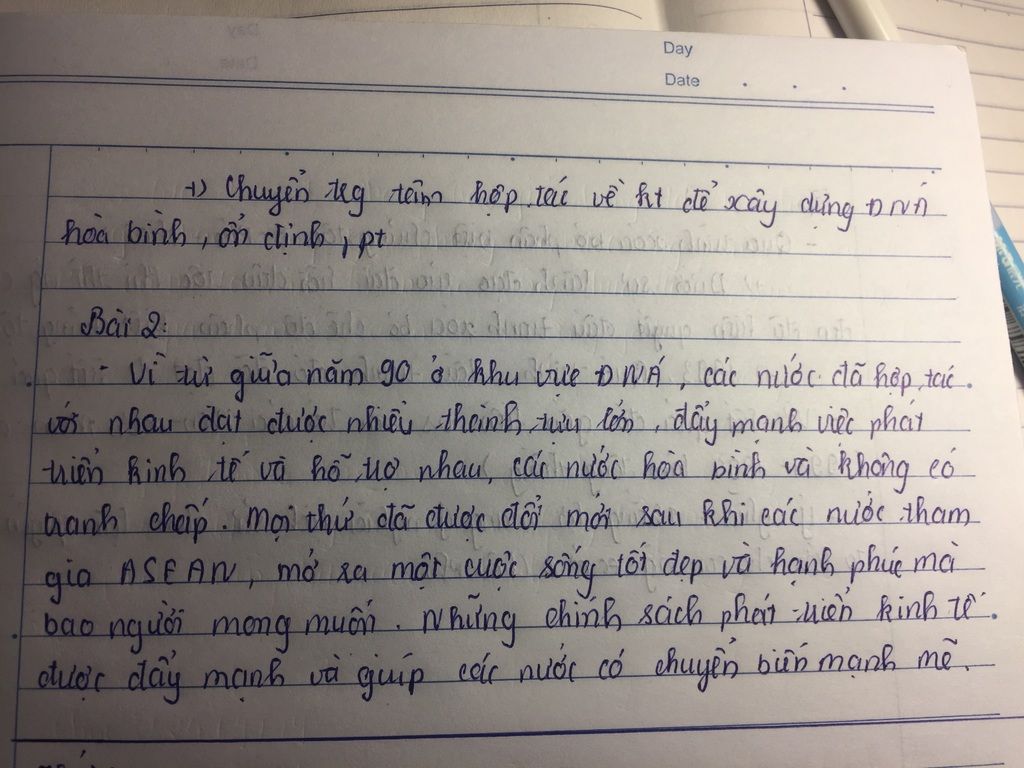 Day
Date . . .
+) Chuyển trg tâm hợp tác về kt để xây dựng ĐNÁ
hoà bình, ổn định, pt
Bài 2:
- Vì từ giữa năm 90 ở khu vực ĐNÁ, các nước đã hợp tác
với nhau đạt được nhiều thành tựu lớn, đẩy mạnh việc phát
triển kinh tế và hỗ trợ nhau, các nước hòa bình và không có
tranh chấp. Mọi thứ đã được đổi mới sau khi các nước tham
gia ASEAN, mở ra một cuộc sống tốt đẹp và hạnh phúc mà
bao người mong muốn. Những chính sách phát triển kinh tế
được đẩy mạnh và giúp các nước có chuyển biến mạnh mẽ.